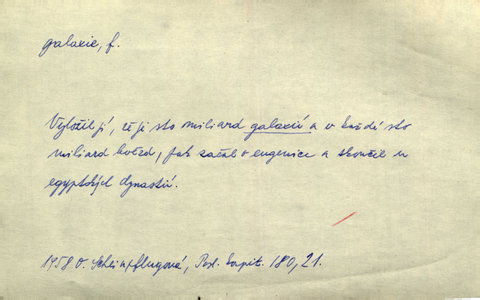 galaxie, f.
Vyložil jí, že je sto miliard galaxií a v každé sto
miliard hvězd, pak začal o eugenice a skončil u
egyptských dynastií.
1958 O. Scheinpflugová, Posl. kapit. 180, 21.